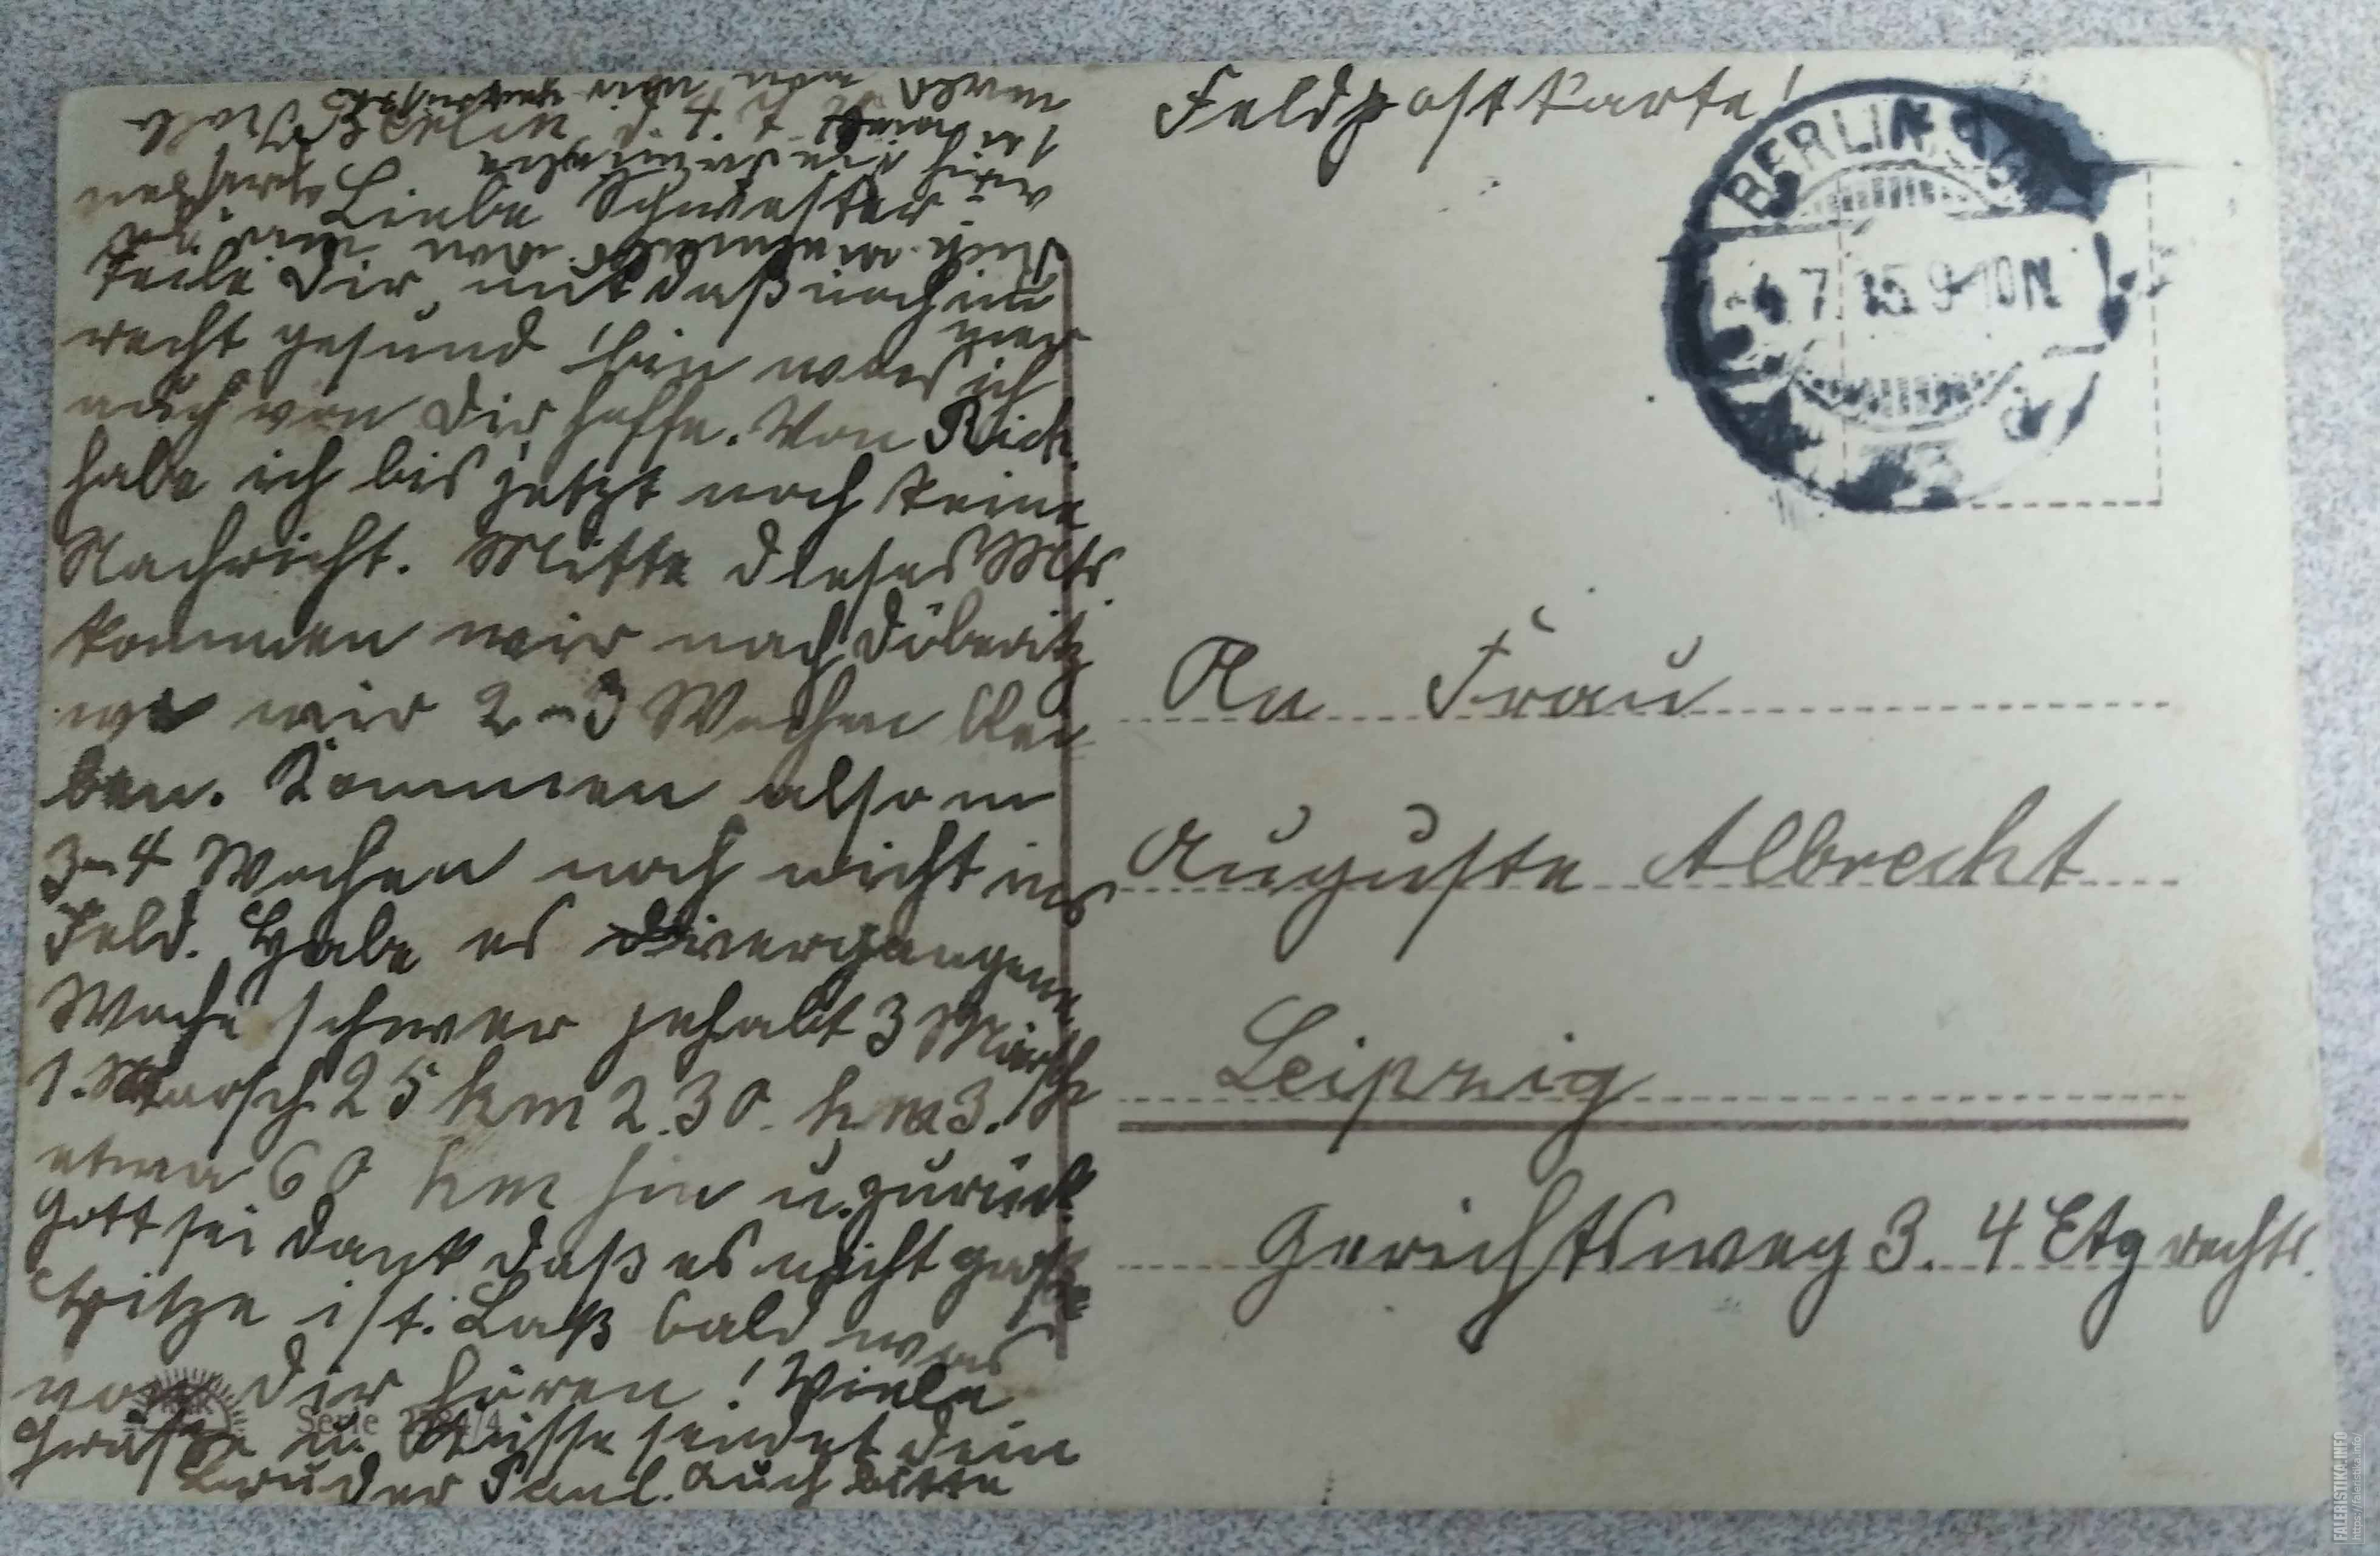 Feldpostkarte!
BERLIN
4.7.15.9-10N.
An Frau
Auguste Albrecht
Leipzig
Gerichtsweg 3. 4 Etg rechts.
Liebe Schwester
teile Dir mit daß noch im
mer
recht gesund bin was ich
auch von Dir hoffe. Von Rich.
habe ich bis jetzt noch keine
Nachricht. Mitte dieses Mts.
kommen wir nach Döberitz
wo wir 2-3 Wochen blei
ben. Kommen also in
3-4 Wochen noch nicht ins
Feld. Habe es vergangene
Woche schwer gehabt 3 Märsche
1. Marsch 25 km 2. 30. km 3.
etwa 60 km hin u. zurück.
Gott sei dank daß es nicht große
Hitze ist. Laß bald was
von Dir hören! Viele
Grüße u. Küsse sendet dein
Bruder Paul. Auch bitte
Serie
FALERISTIKA.INFO
https://faleristika.info/